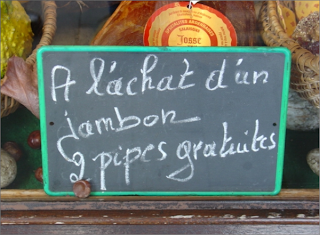 Fosse
A l'achat d'un
jambon
2 pipes gratuites